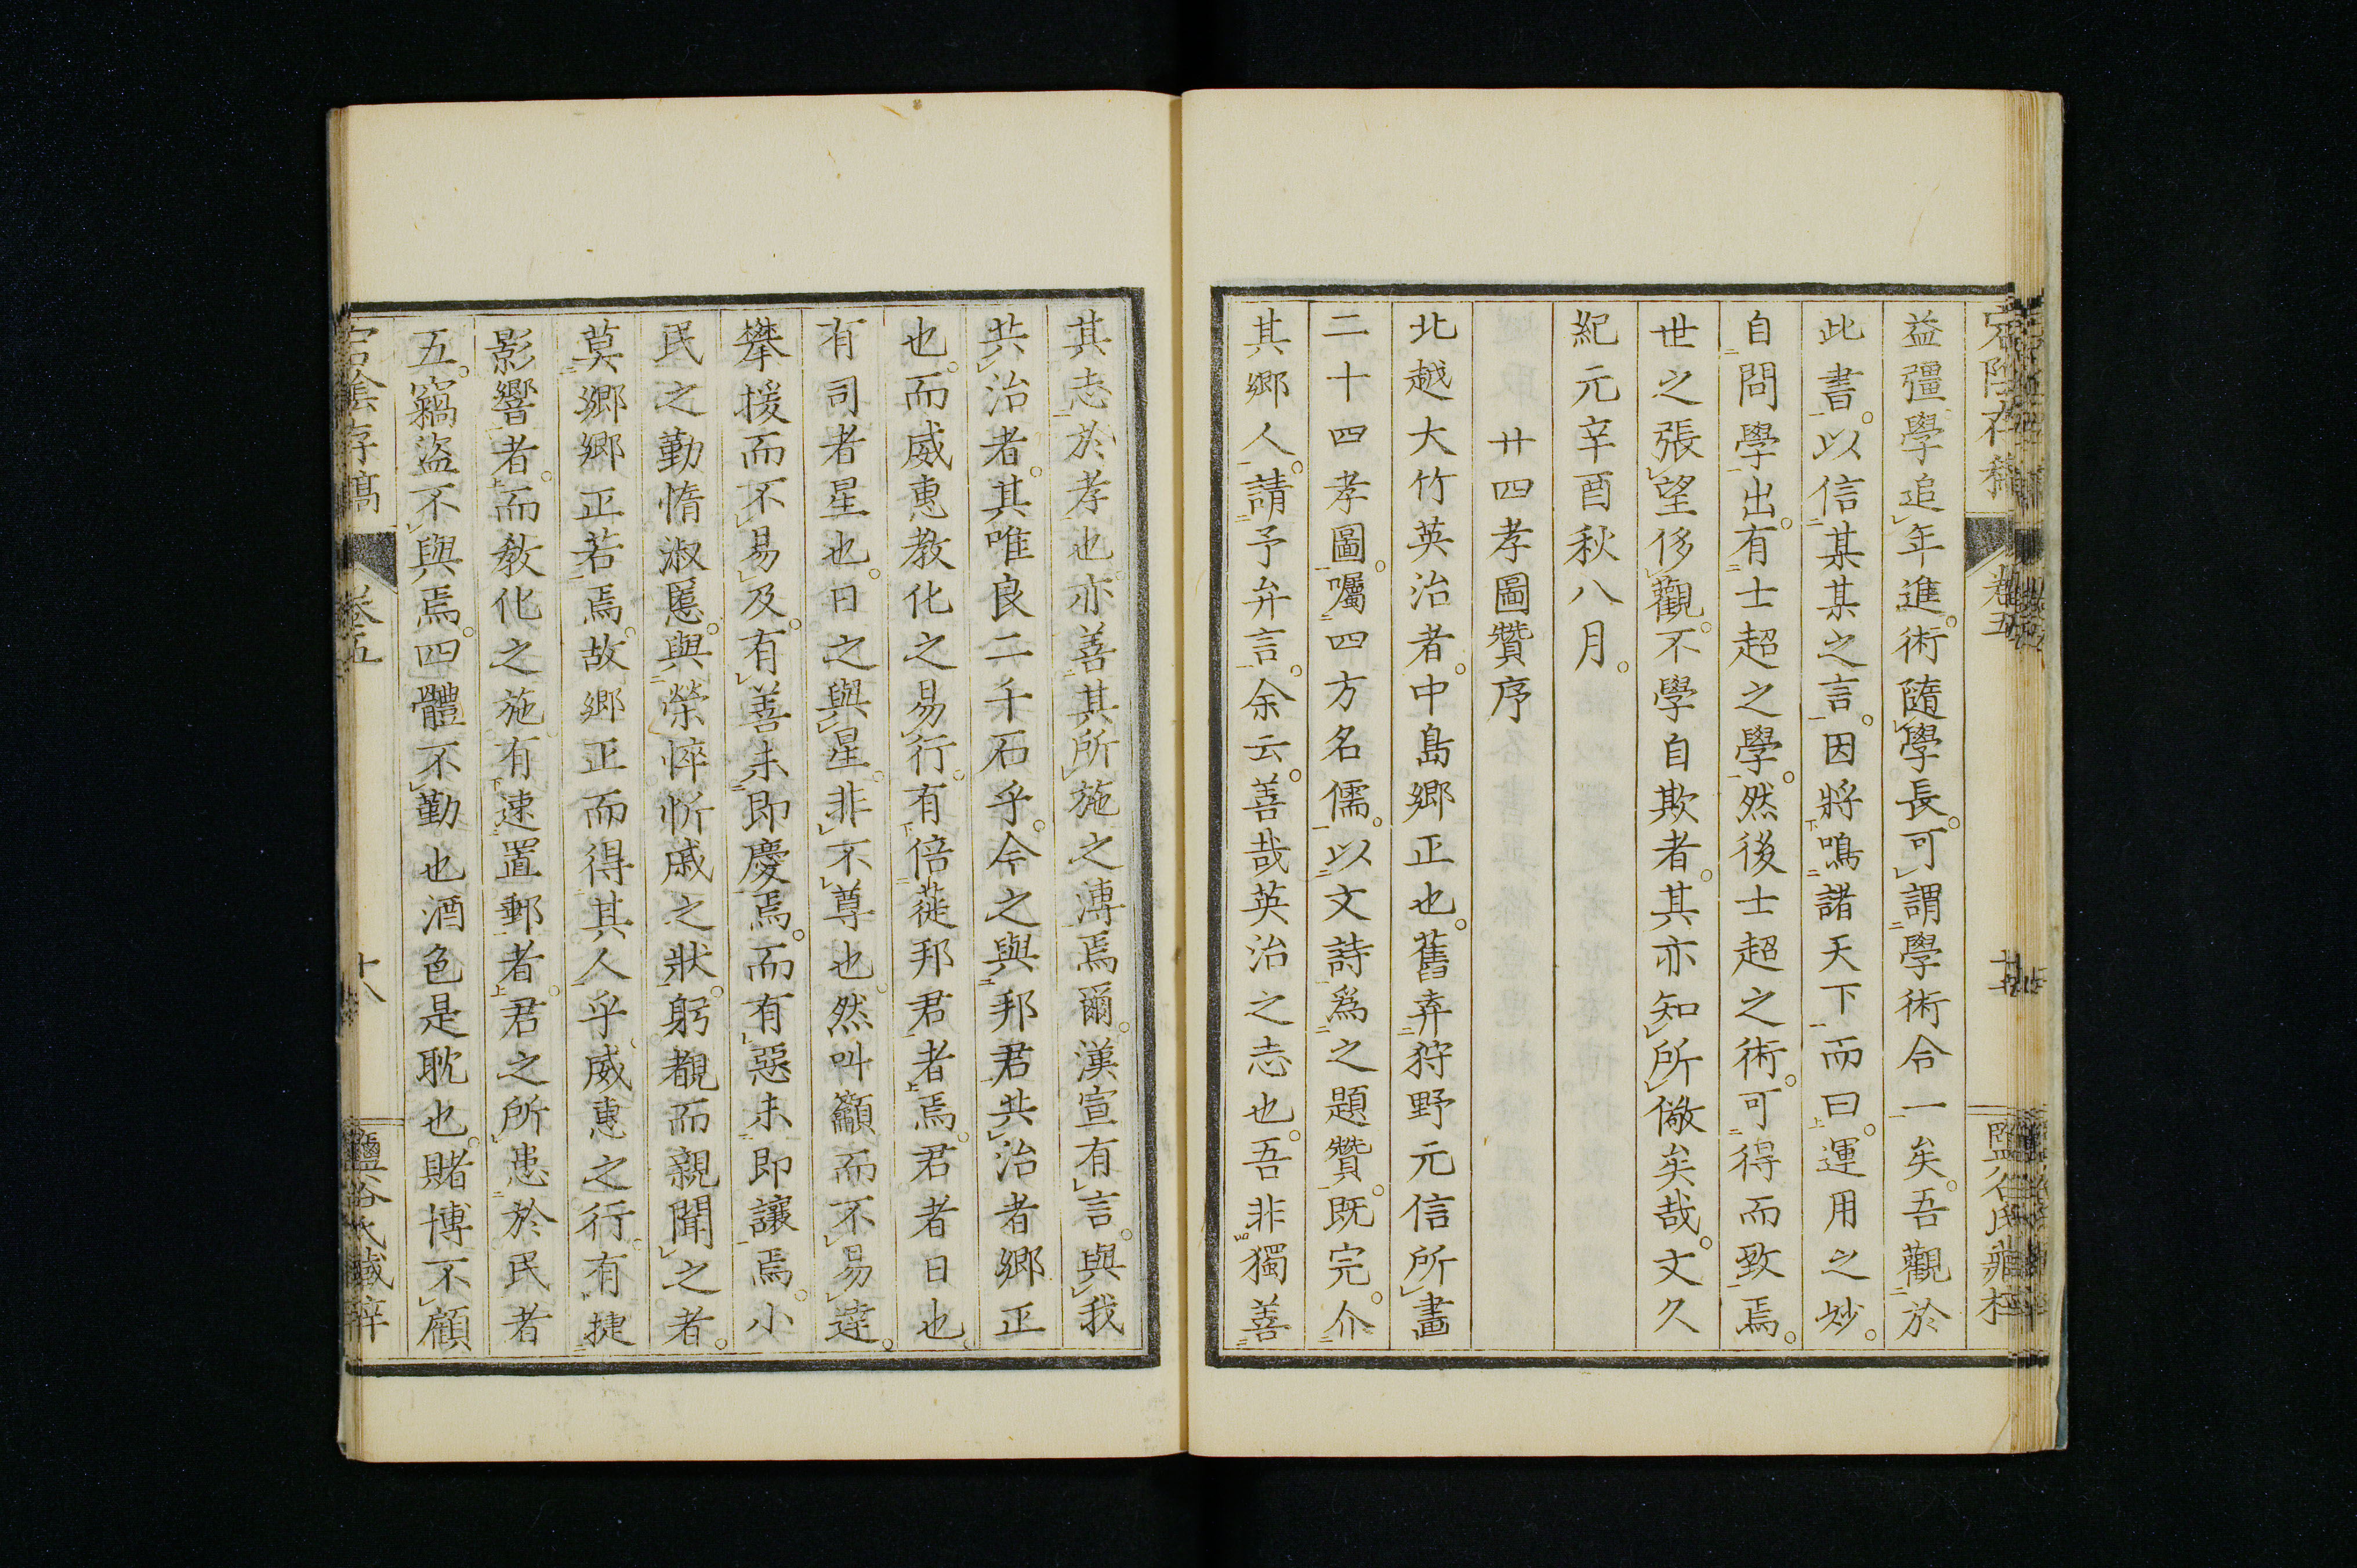 益彊學追年進。術隨學長。可謂學術合一矣。吾觀於
此書。以信某某之言。因將鳴諸天下而曰。運用之妙。
自問學出。有士超之學。然後士超之術。可得而致焉。
世之張望侈觀。不學自欺者。其亦知所儆矣哉。文久
紀元辛酉秋八月。
廿四孝圖贊序
北越大竹英治者。中島鄉正也。舊弆狩野元信所畫
二十四孝圖。囑四方名儒。以文詩爲之題贊。既完。介
其鄉人。請予弁言。余云。善哉英治之志也。吾非獨善
其志於孝也。亦善其所施之溥焉爾。漢宣有言。與我
共治者。其唯良二千石乎。今之與邦君共治者鄉正
也。而威惠教化之易行。有倍蓰邦君者焉。君者日也。
有司者星也。日之與星。非不尊也。然叫籲而不易達。
攀援而不易及。有善未即慶焉。而有惡未即讓焉。小
民之勤惰淑慝。與榮悴忻戚之狀。躬覩而親聞之者。
莫鄉鄉正若焉。故鄉正而得其人乎。威惠之行。有捷
影響者。而教化之施。有速置郵者。君之所患於民者
五。竊盜不與焉。四體不勤也。酒色是耽也。賭博不顧
卷五
十八
鹽谷氏藏梓